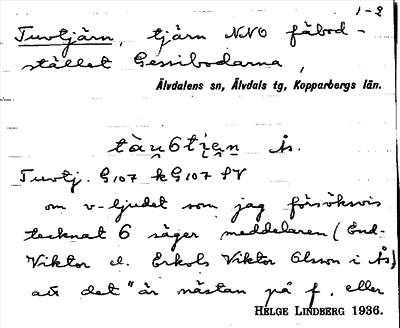 1-2
Tuvtjärn, tjärn NNO fäbod-
stället Gessibodarna,
Älvdalens sn, Älvdals tg, Kopparbergs län.
Ås.
Tuvtj. G107 k G107 SV
om v-ljudet som jag försöksvis
tecknat 6 säger meddelaren (End-
Viktor el. Erkols Viktor Olsson i Ås)
att det "är nästan på f, eller
HELGE LINDBERG 1936.